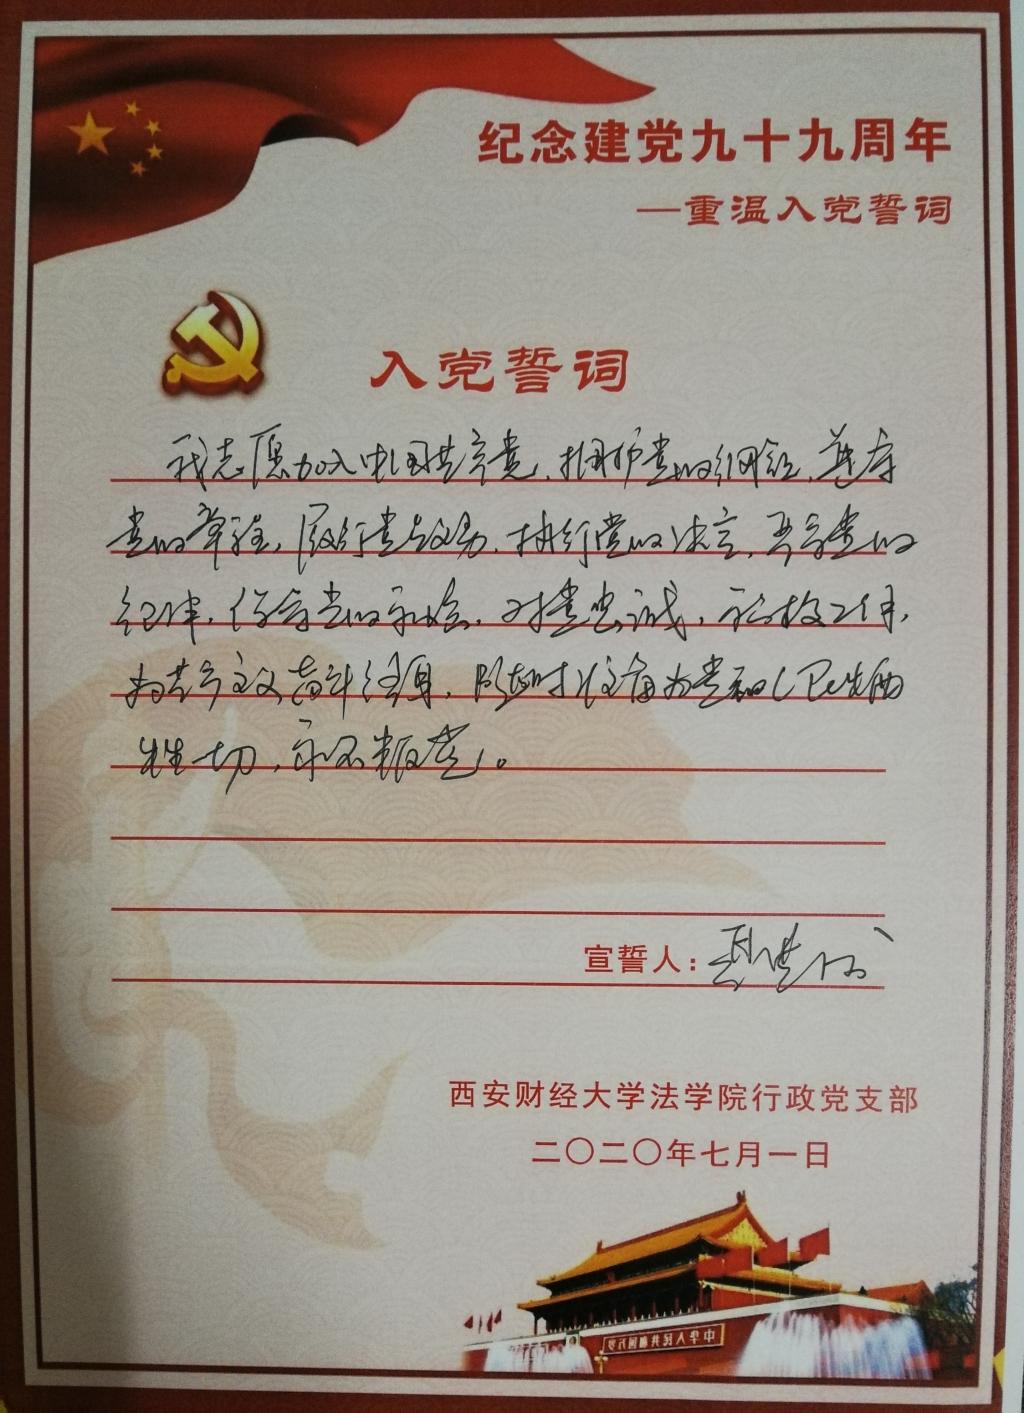 纪念建党九十九周年
—重温入党誓词
入党誓词
我志愿加入中国共产党,拥护党的纲领,遵守
党的章程,履行党员义务,执行党的决定,严守党的
纪律,保守党的秘密,对党忠诚,积极工作,
为共产主义奋斗终身,随时准备为党和人民牺
牲一切,永不叛党。
宣誓人:
西安财经大学法学院行政党支部
二〇二〇年七月一日
中华人民共和国万岁